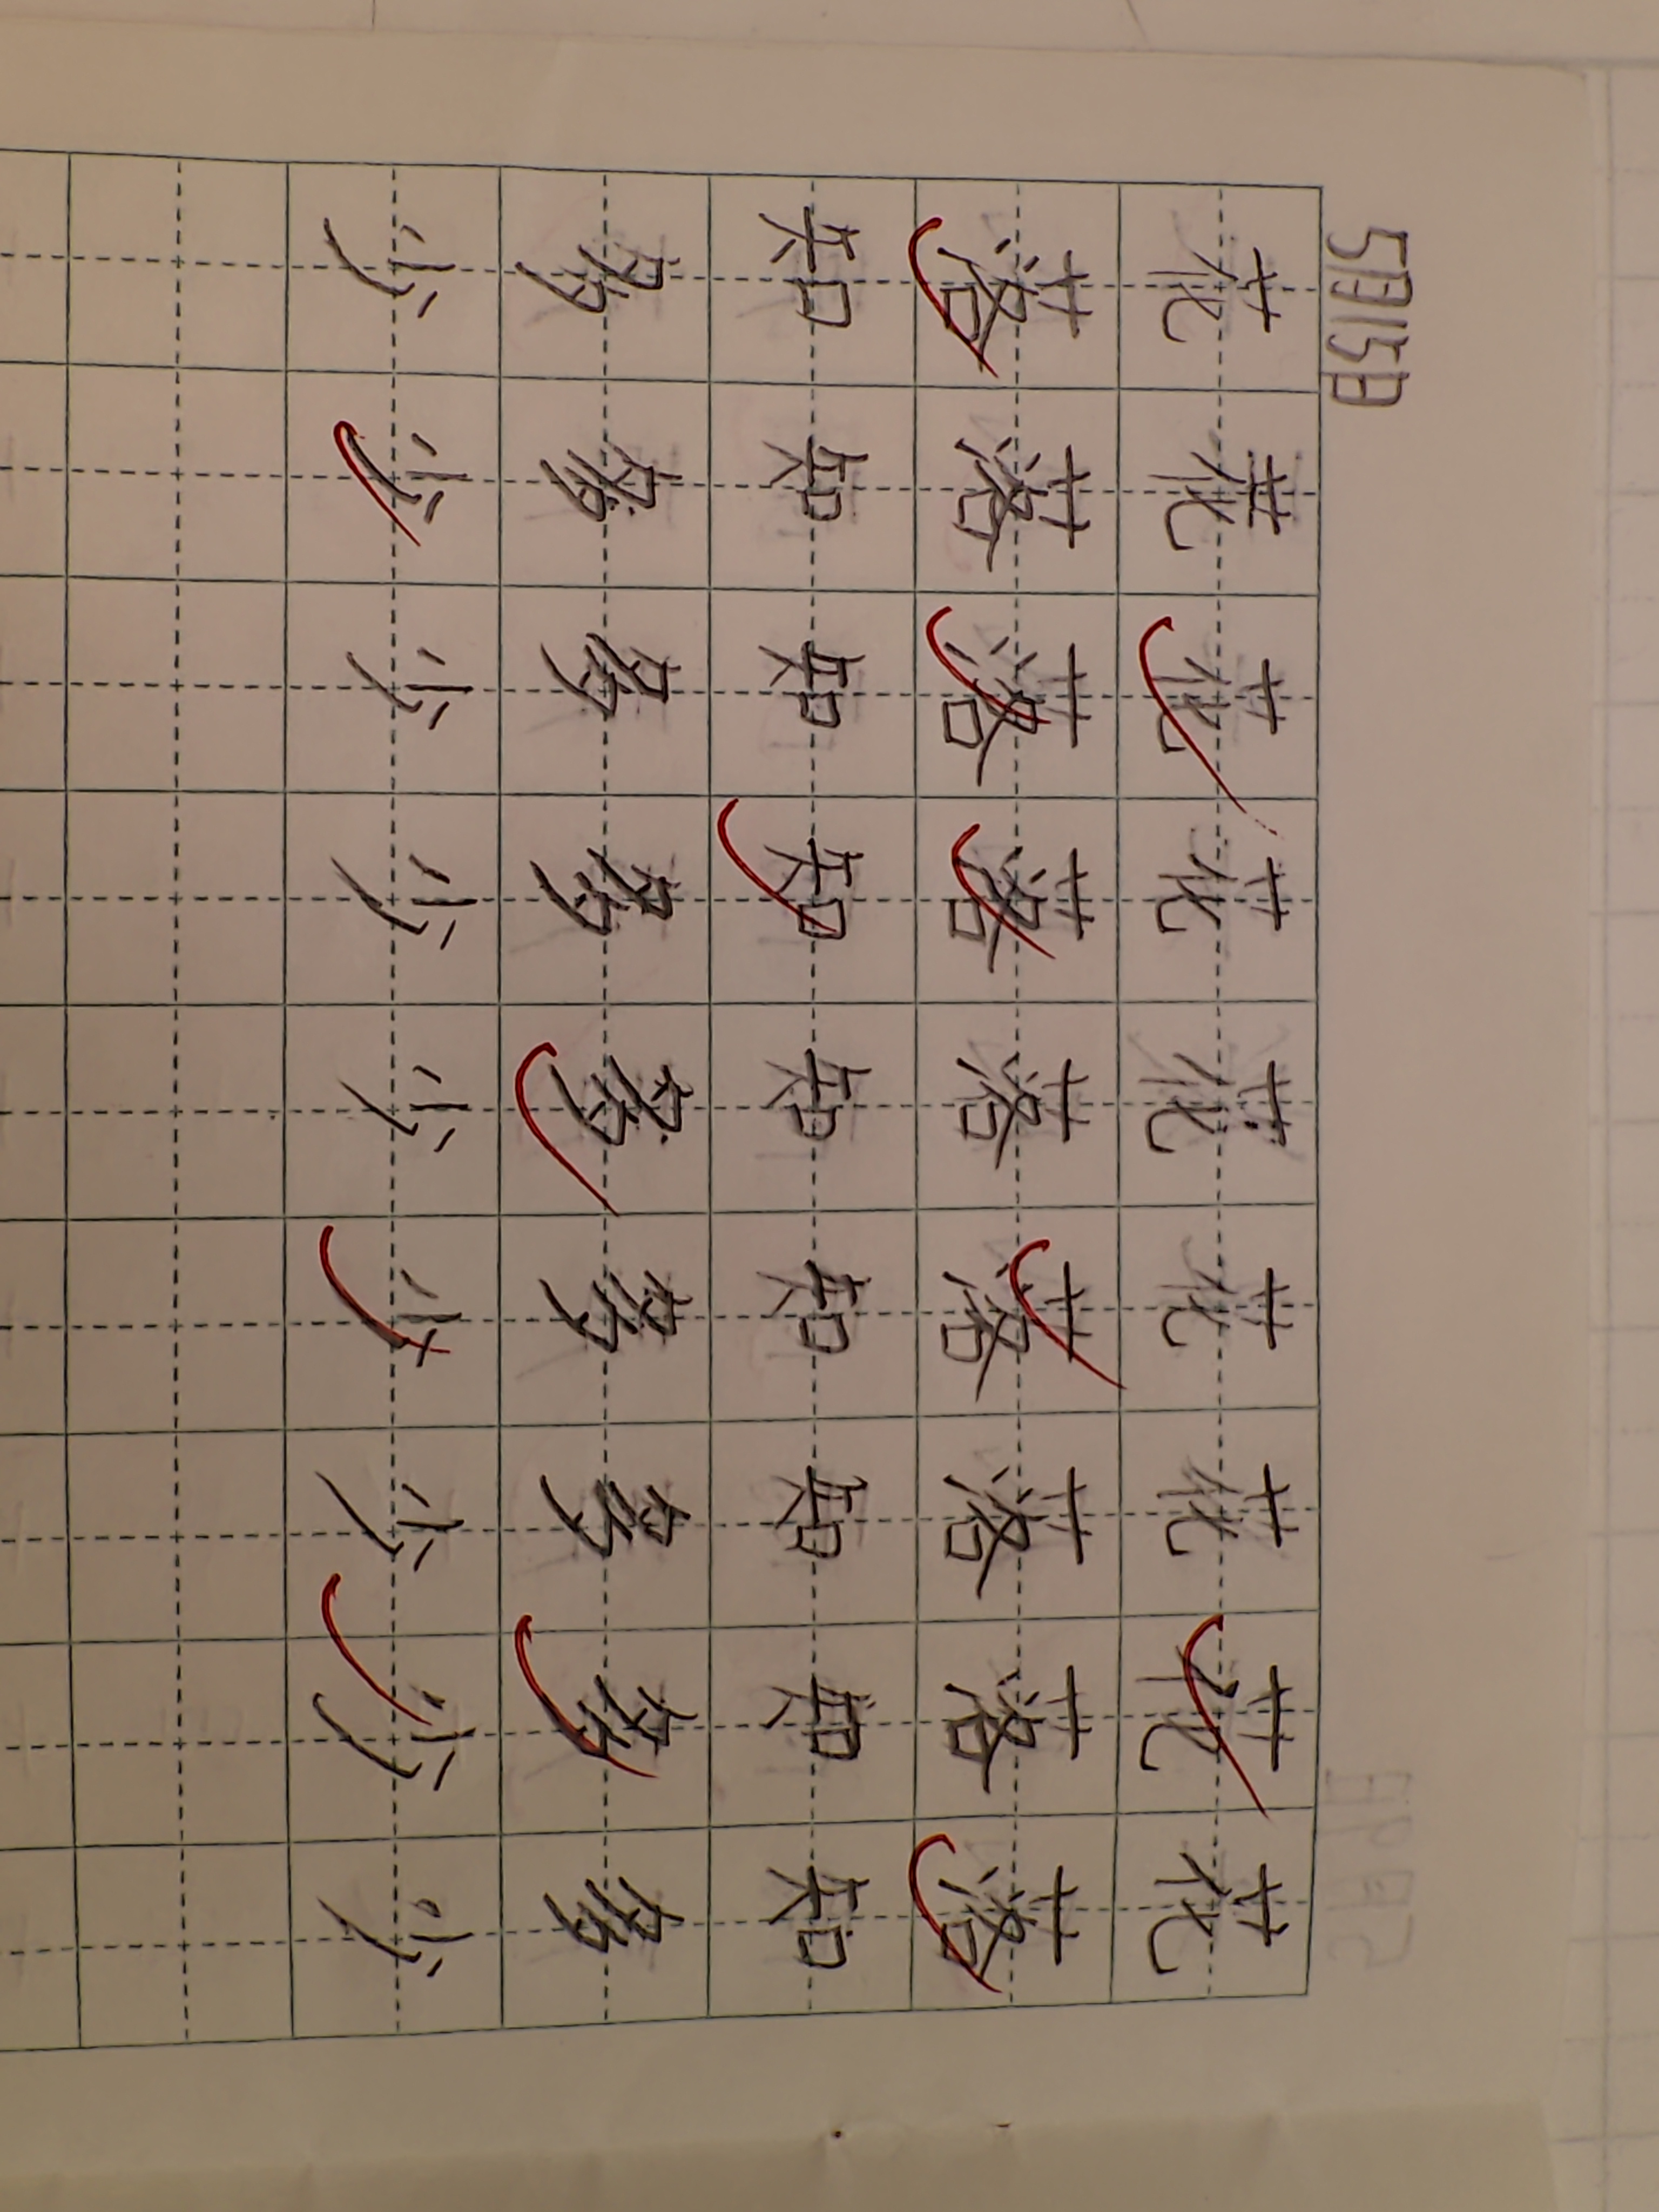 5月15日
花花花花花花花花花
落落落落落落落落落
知知知知知知知知知
多多多多多多多多多
少少少少少少少少少